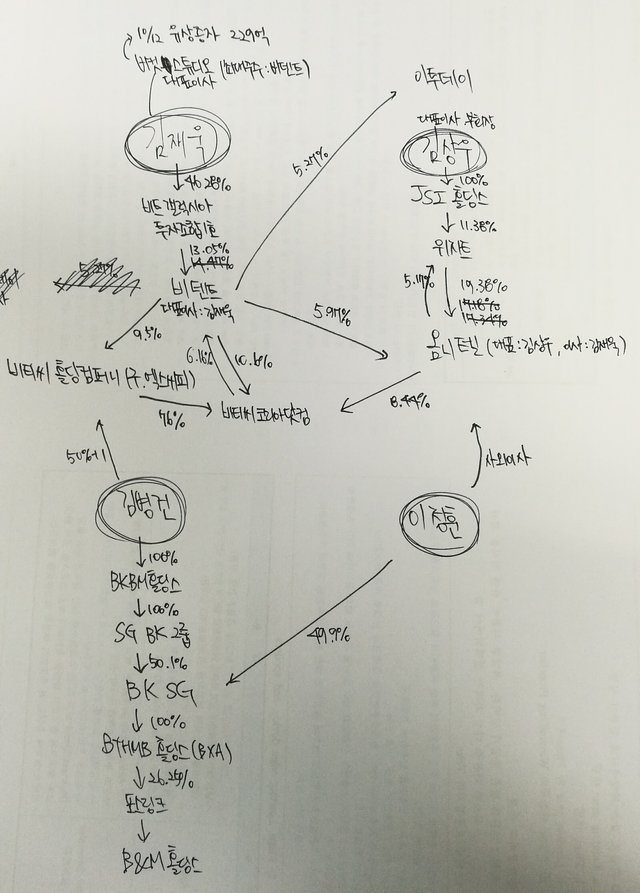 10/12 유상증자 229억
버킷스튜디오 (최대주주:비덴트)
대표이사
이투데이
대표이사 부회장
김재욱
김상우
46.28%
5.27%
100%
비트갤럭시아
투자조합1호
JSI 홀딩스
11.38%
13.05%
14.47%
위지트
5.27%
비덴트
대표이사:김재욱
5.17%
19.38%
17.18%
17.34%
5.97%
9.5%
6.16%
10.6%
옴니텔 (대표:김상우, 이사:김재욱)
비티씨 홀딩컴퍼니 (구.엑스씨피)
비티씨코리아닷컴
8.44%
76%
50%+1
사외이사
김병건
이정훈
100%
BKBM홀딩스
100%
SG BK그룹
49.9%
50.1%
BK SG
100%
BTHMB 홀딩스(BXA)
26.25%
판링크
B&M 홀딩스